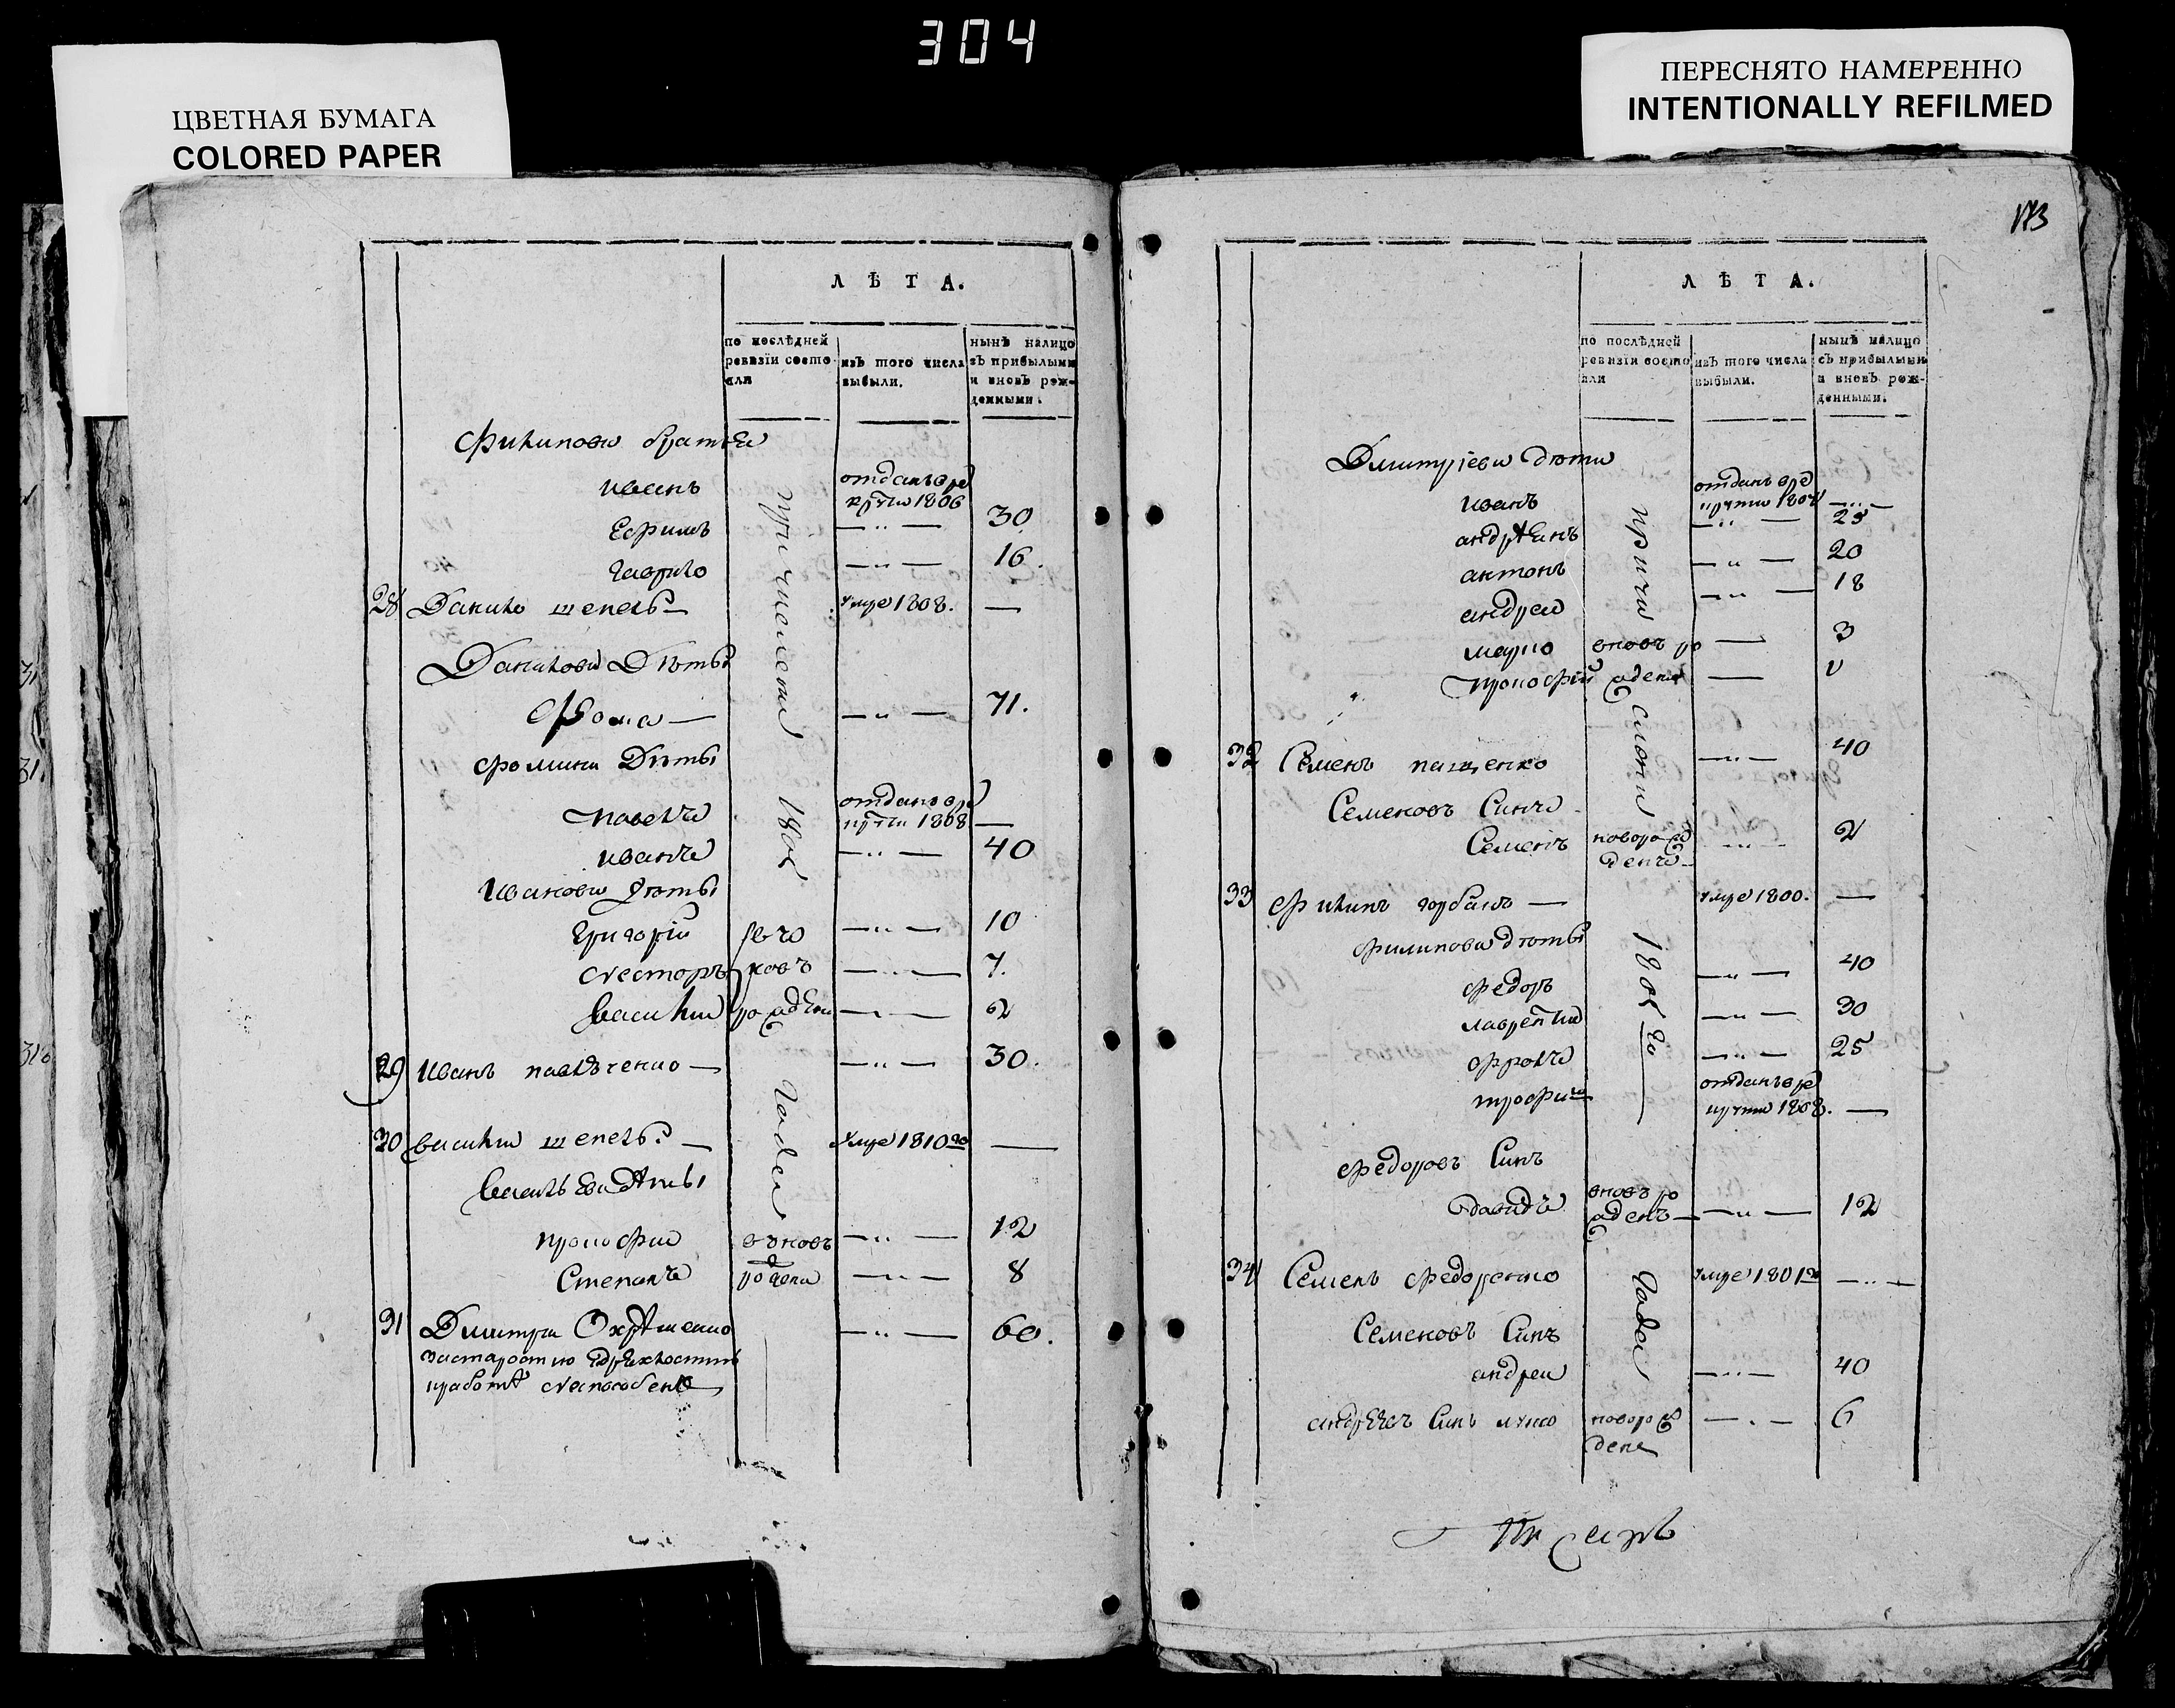 304
ЦВЕТНАЯ БУМАГА
COLORED PAPER
ПЕРЕСНЯТО НАМЕРЕННО
INTENTIONALLY REFILMED
173
Л Ѣ Т А.
по послѣдней ревизіи состояли
изъ того числа выбыли.
нынѣ налицо съ прибылыми и вновь рожденными.
Филиповы братья
иванъ отданъ в рекруты 1806
Ефимъ —〃— 30
Гаврило —〃— 16.
28 Данило шепель — умре 1808. —
Даниловы Дѣты
Фома — —〃— 71.
Фомины Дѣты
Павелъ отданъ в рекруты 1808 —
иванъ —〃— 40
Ивановы дѣты
Григорій —〃— 10
Несторъ —〃— 7.
василий —〃— 2
вновъ рождены
29 Иванъ —〃— 30.
30 василий шепель. — умре 1810го —
Дѣты
прокофий —〃— 12
Степанъ —〃— 8
вновъ рождени
31 Дмитри —〃— 60.
годеи
Л Ѣ Т А.
по послѣдней ревизіи состояли
изъ того числа выбыли.
нынѣ налицо съ прибылыми и вновь рожденными.
Дмитріеви дѣти
иванъ отданъ в рекруты 1804 —
—〃— 25
антонъ —〃— 20
андреи —〃— 18
марко вновъ ро — 3
прокофій ждени —
32 Семенъ пащенко —〃— 40
Семеновъ Синъ
Семенъ новорожденъ —〃— 2
33 Филипъ горбань — умре 1800. —
филиповы дѣты
федоръ —〃— 40
лаврентий —〃— 30
фролъ —〃— 25
трофим отданъ в рекруты 1808. —
федоровъ Синъ
давидъ вновъ рожденъ —〃— 12
34 Семенъ федоренко умре 1801го —
Семеновъ Синъ
андреи —〃— 40
Синъ новорожден —〃— 6
годеи